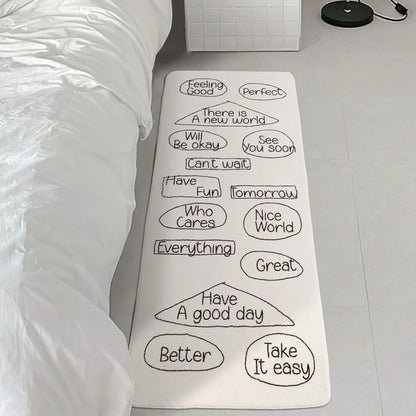 Feeling
Good
Perfect
There is
A new world
Will
Be okay
See
You soon
Can,t wait
Have
Fun
Tomorrow
Who
Cares
Nice
World
Everything
Great
Have
A good day
Better
Take
It easy